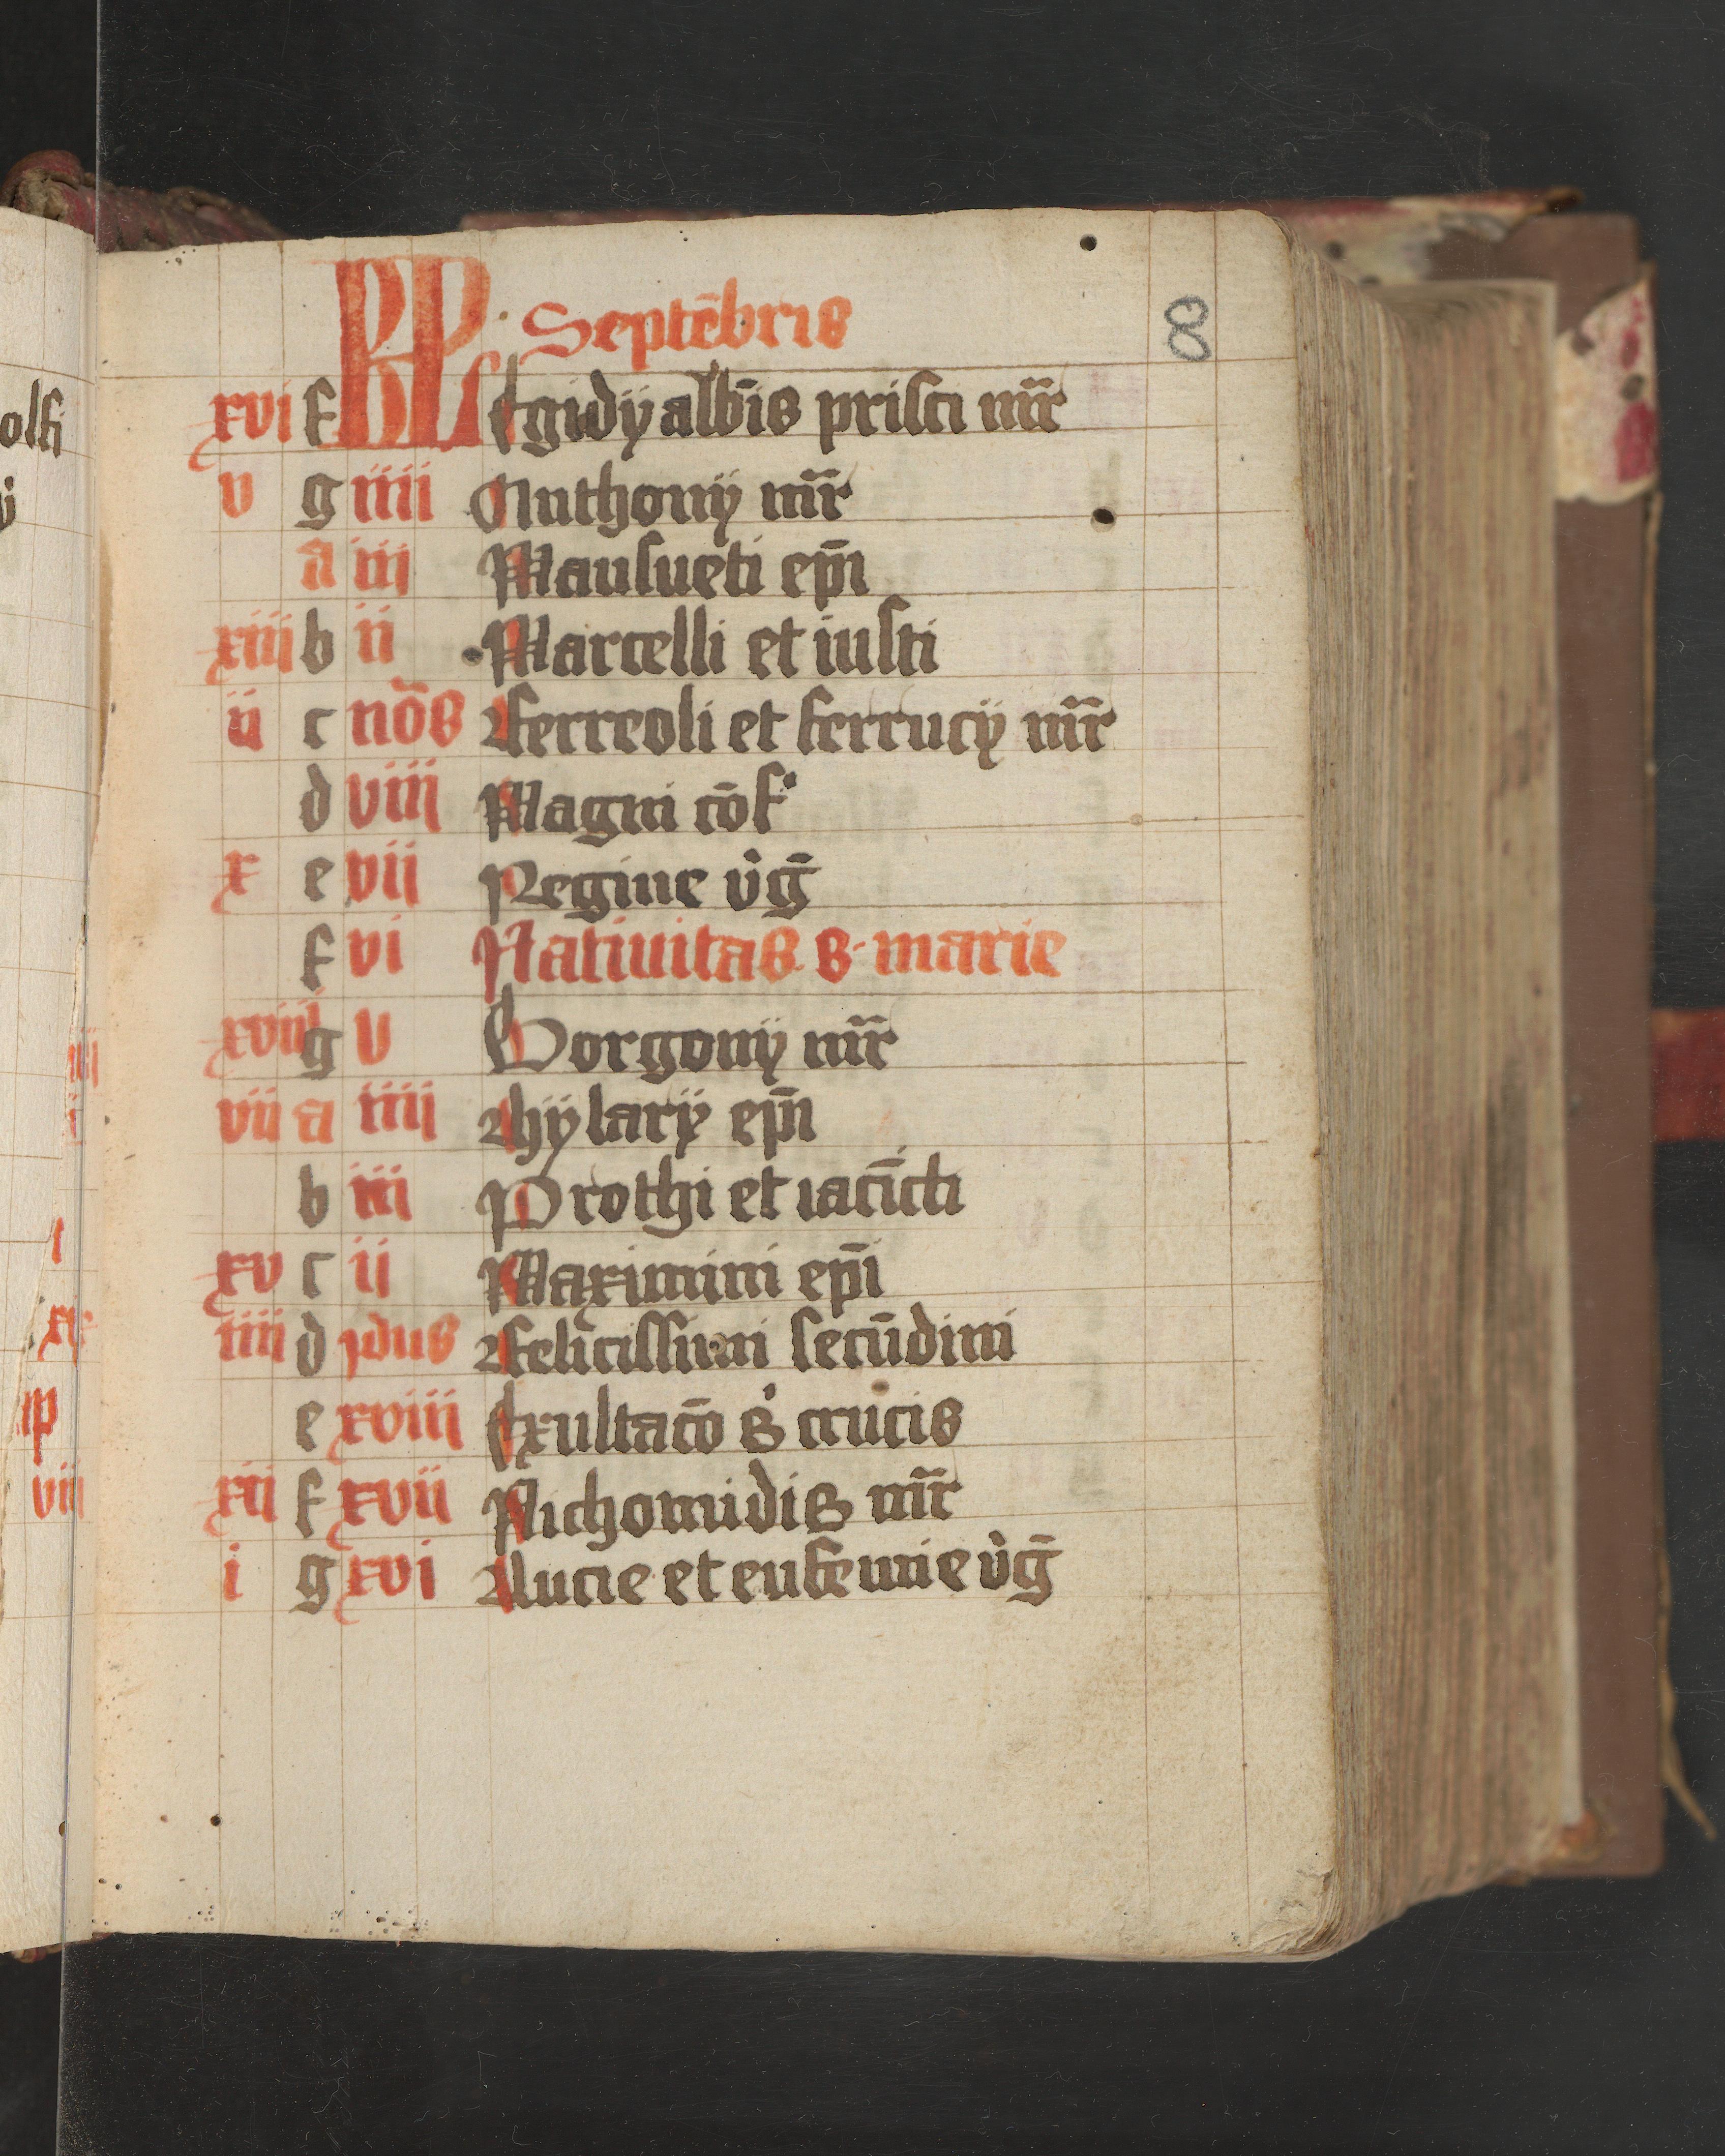 KL Septēbris
8
xvi f Egidÿ albīs prisci mr̄
v g iiii Anthonÿ mr̄
a iii Mansueti ep̄i
xiii b ii Marcelli et iusti
ii c nōs Ferreoli et ferrucÿ mr̄
d viii Magni cōf
x e vii Regine v̊ḡ
f vi Natiuitas s. marie
xviii g v Gorgonÿ mr̄
vii a iiii hÿlarÿ ep̄i
b iii Prothi et iacīcti
xv c ii Maximini ep̄i
iiii d ydus Felicissimi secūdini
e xviii Exultacō s̊ crucis
xii f xvii Nichomidis mr̄
i g xvi Lucie et eufemie v̊ḡ